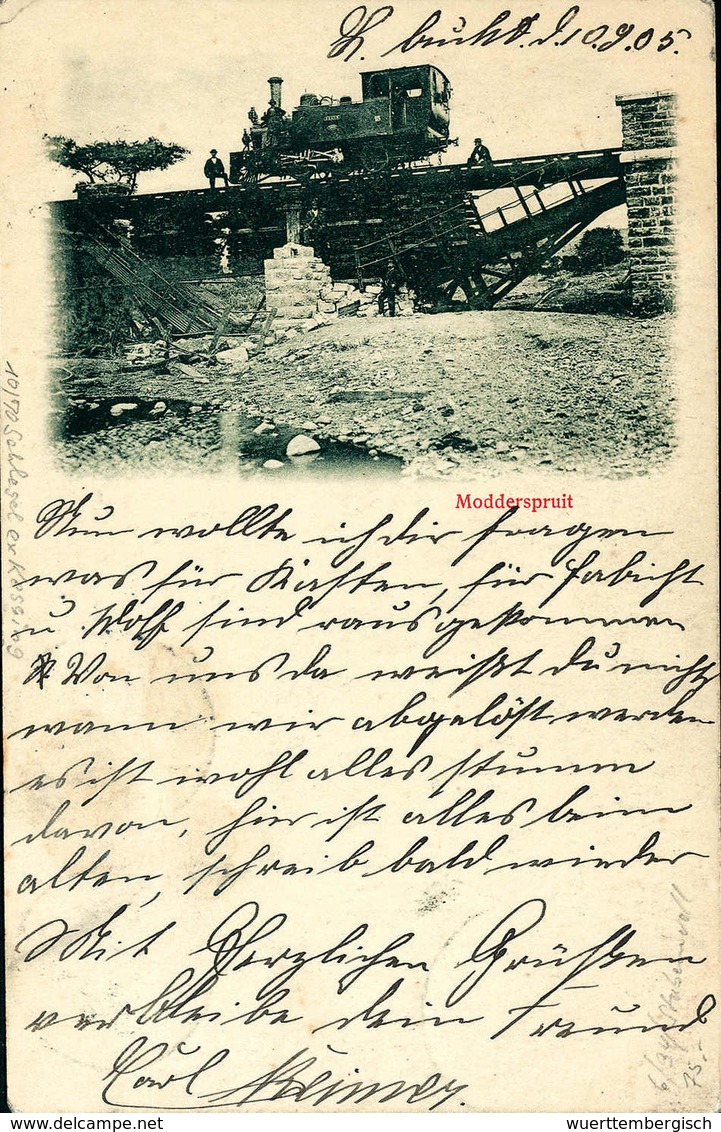 L. bucht d. 10.9.05.
Modderspruit
Nun wollte ich dir fragen
was für Kasten, für Habicht
u Wolf sind rausgekommen
Von uns da weißt du nicht
wann wir abgelöst werden
es ist wohl alles stumm
davon, hier ist alles beim
alten, schreib bald wieder
Mit Herzlichen Grüßen
verbleibe dein Freund
Carl
75.-
wuerttembergisch